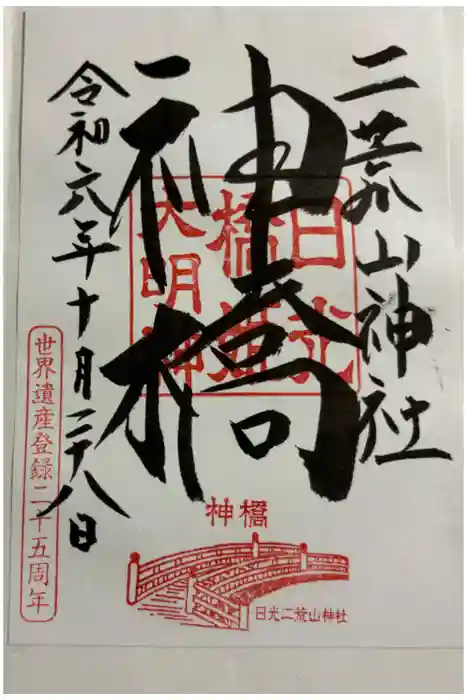 二荒山神社
神橋
令和六年十月二十八日
日光
橋姫
大明神
世界遺産登録二十五周年
神橋
日光二荒山神社